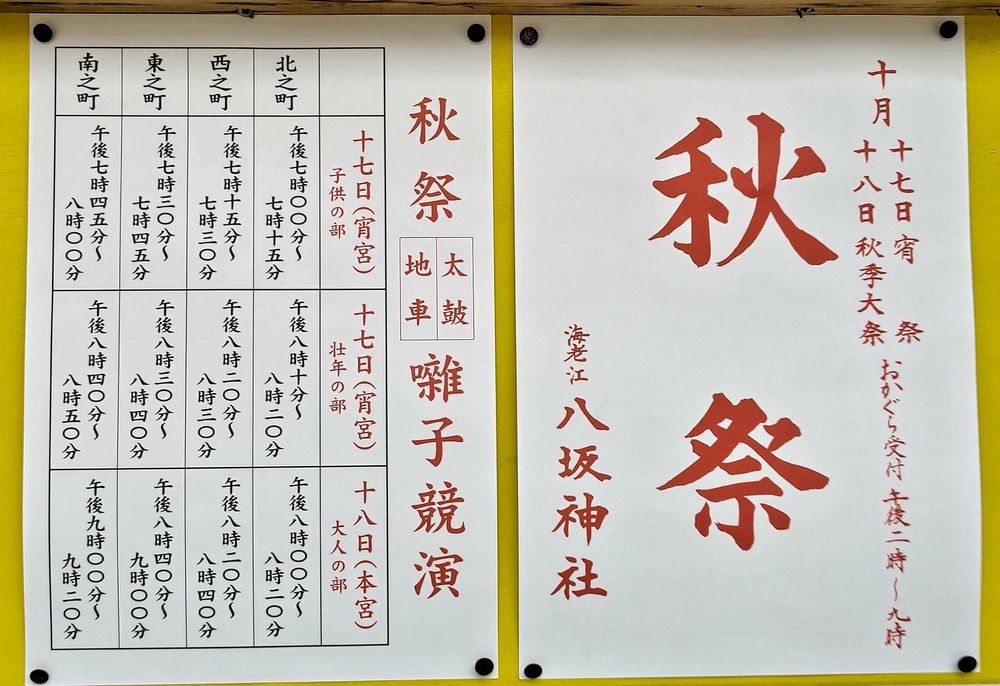 十月
十七日宵祭
十八日秋季大祭
おかぐら受付 午後二時〜九時
秋祭
海老江 八坂神社
秋祭
太鼓
地車
囃子競演
十七日(宵宮)
子供の部
十七日(宵宮)
壮年の部
十八日(本宮)
大人の部
北之町
午後七時〇〇分〜
七時十五分
午後八時十分〜
八時二〇分
午後八時〇〇分〜
八時二〇分
西之町
午後七時十五分〜
七時三〇分
午後八時二〇分〜
八時三〇分
午後八時二〇分〜
八時四〇分
東之町
午後七時三〇分〜
七時四五分
午後八時三〇分〜
八時四〇分
午後八時四〇分〜
九時〇〇分
南之町
午後七時四五分〜
八時〇〇分
午後八時四〇分〜
八時五〇分
午後九時〇〇分〜
九時二〇分